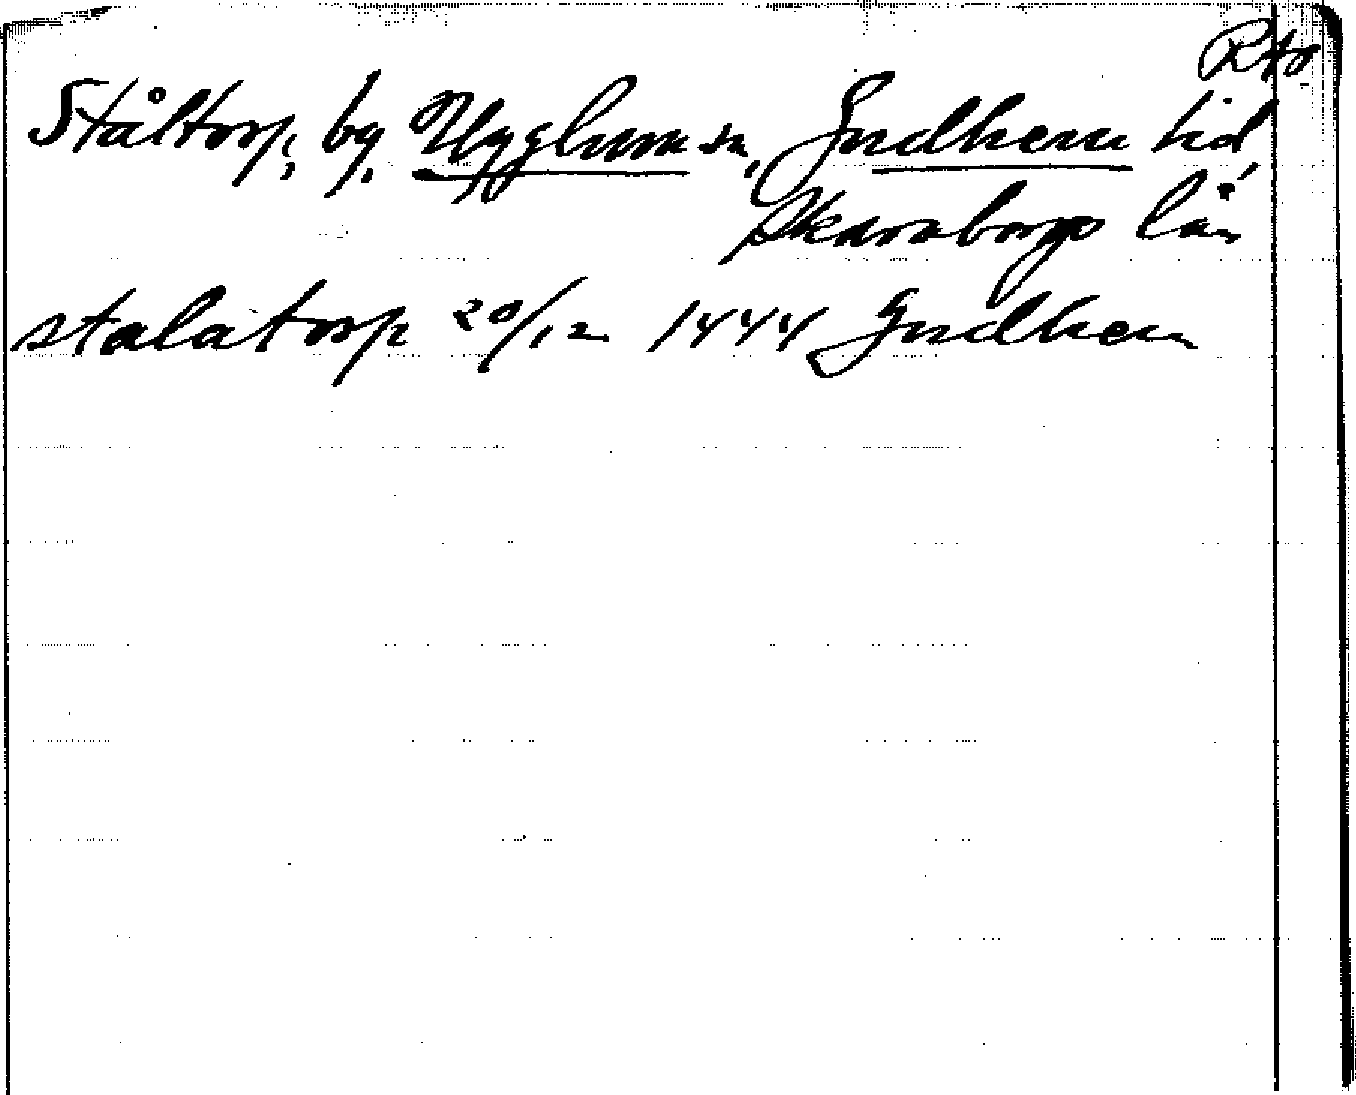 Rto
Ståltorp, by, Ugglum sn, Gudhem hd,
Skaraborgs län
stalatorp 20/12 1444 Gudhem